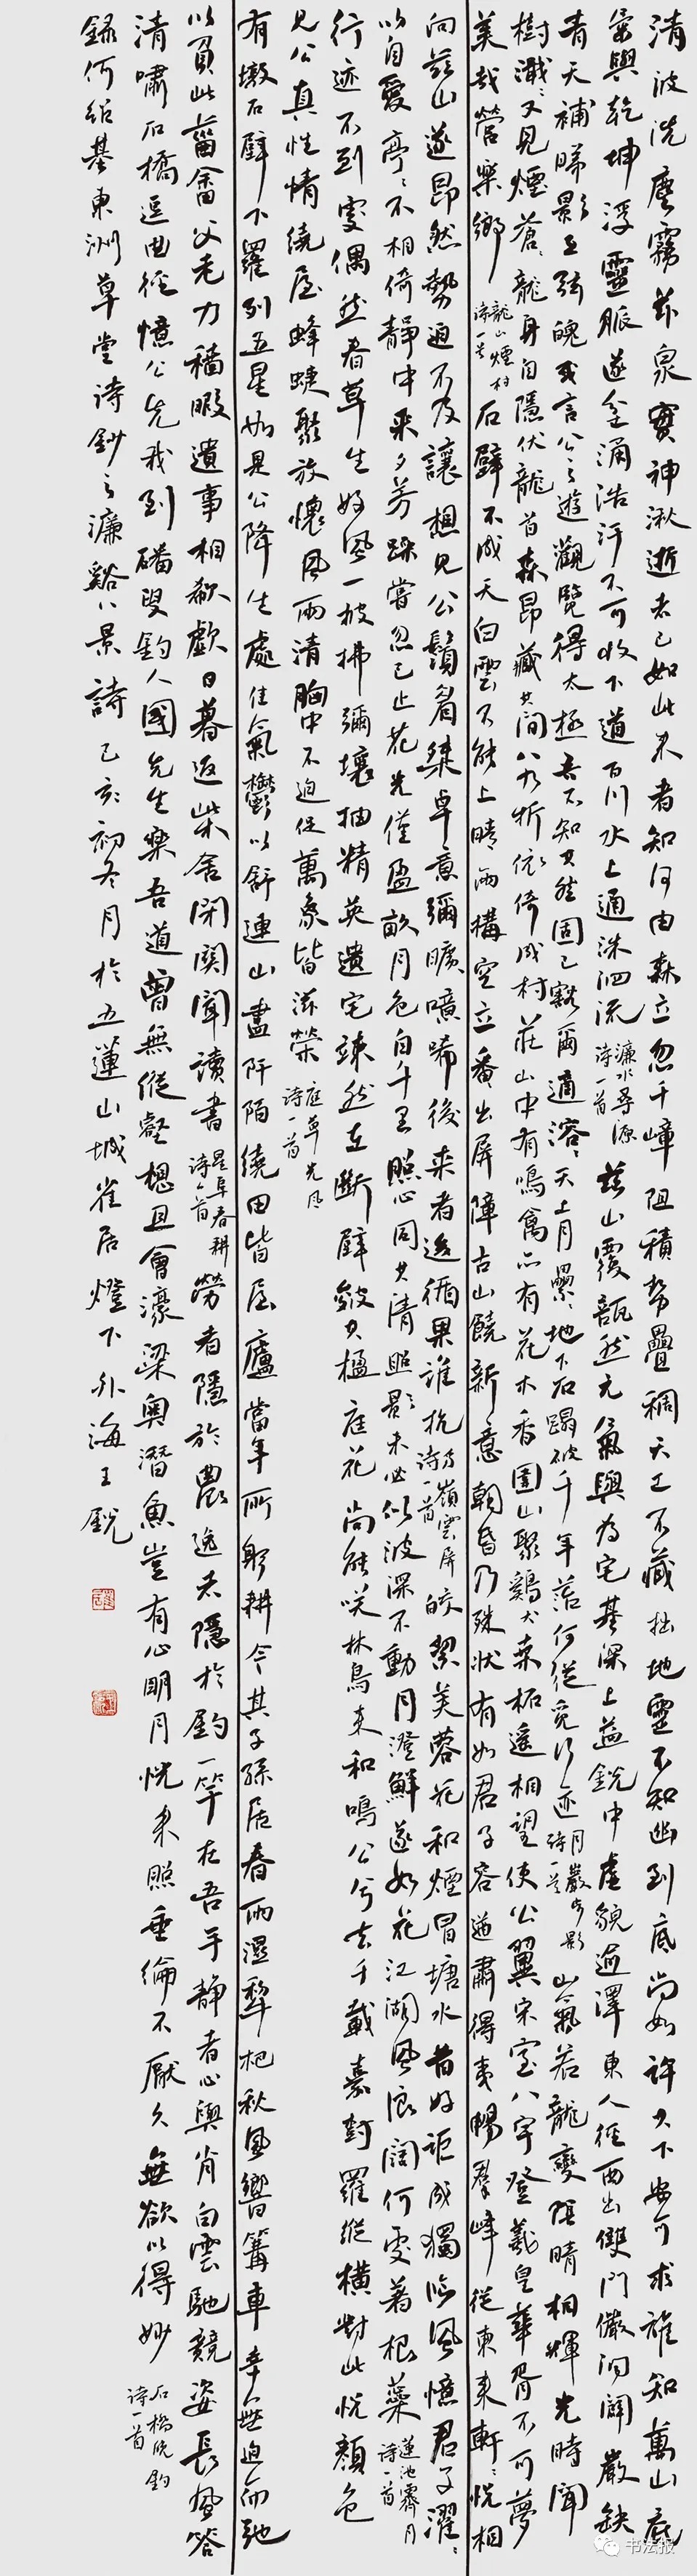 清波洗塵霧茲泉實神湫逝者已如此來者知何由森立忽千嶂阻積勢疊稠天工不藏拙地靈不知幽到底尚如許其下安可求誰知萬山底
氣與乾坤浮靈脈遂坌涌浩汗不可收下道百川水上通洙泗流 濂水尋源詩一首 茲山覆甑然元氣與為宅基深上益銳中虛貌逾澤東人徑西出雙門儼洞闢巖缺
青天補睇影互弦魄或言公之遊觀覽得太極吾不知其然固已豁爾適溶溶天上月壘壘地下石蹋破千年苔何從覓行迹 月巖步影詩一首 山氣若龍變陰晴相輝光時聞
樹濈濈又見煙蒼蒼龍身自隱伏龍首森昂藏其間八九析依倚成村莊山中有鳴禽亦有花木香園山聚雞犬桑柘遙相望使公翼宋室八宇登羲皇華胥不可夢
美哉營樂鄉 龍山煙村詩一首 石壁不成天白雲不能上晴雨構空立番出屏障古山饒新意朝昏乃殊狀有如君子容遒肅得夷暢群峰從東來軒軒恍相
向茲山遂昂然勢迴不及讓想見公鬚眉桀卓意彌曠噫唏後來者逡循果誰抗 嶺雲屏詩一首 皎潔芙蓉花和煙冒塘水昔好詎成獨臨風憶君子濯濯
以自愛亭亭不相倚靜中采夕芳躁嘗忽已止花光僅盈畝月色自千里照心同其清照影未必似波深不動月澄鮮遂如花江湖風浪闊何處著根蘂 蓮池霽月詩一首
行迹不到處偶然春草生好風一披拂彌壤抽精英遺宅竦然在斷壁斂其楹庭花尚能笑林鳥來和鳴公兮去千載嘉對羅縱橫對此悅顏色
見公真性情繞屋蜂蜨聚放懷風雨清胸中不迫促萬象皆滋榮 庭草光風詩一首
有墩石壁下羅列五星如是公降生處佳氣鬱以舒連山盡阡陌繞田皆屋廬當年所躬耕今其子孫居春雨濕犁杷秋風響篝車幸無迫而馳
以負此菑畬父老力穡暇遺事相欷歔日暮返柴舍閉關聞讀書 星阜春耕詩一首 勞者隱於農逸者隱於釣一竿在吾手靜者心與肖白雲馳競姿長風答
清嘯石橋逗曲徑憶公先我到磻叟釣人國先生樂吾道曾無從壑想且會濠梁奧潛魚豈有心明月恍來照垂綸不厭久無欲以得妙 石橋晚釣詩一首
錄何紹基東洲草堂詩鈔之濂谿八景詩 己亥初冬月於五蓮山城雀居燈下 外海王銳
书法报